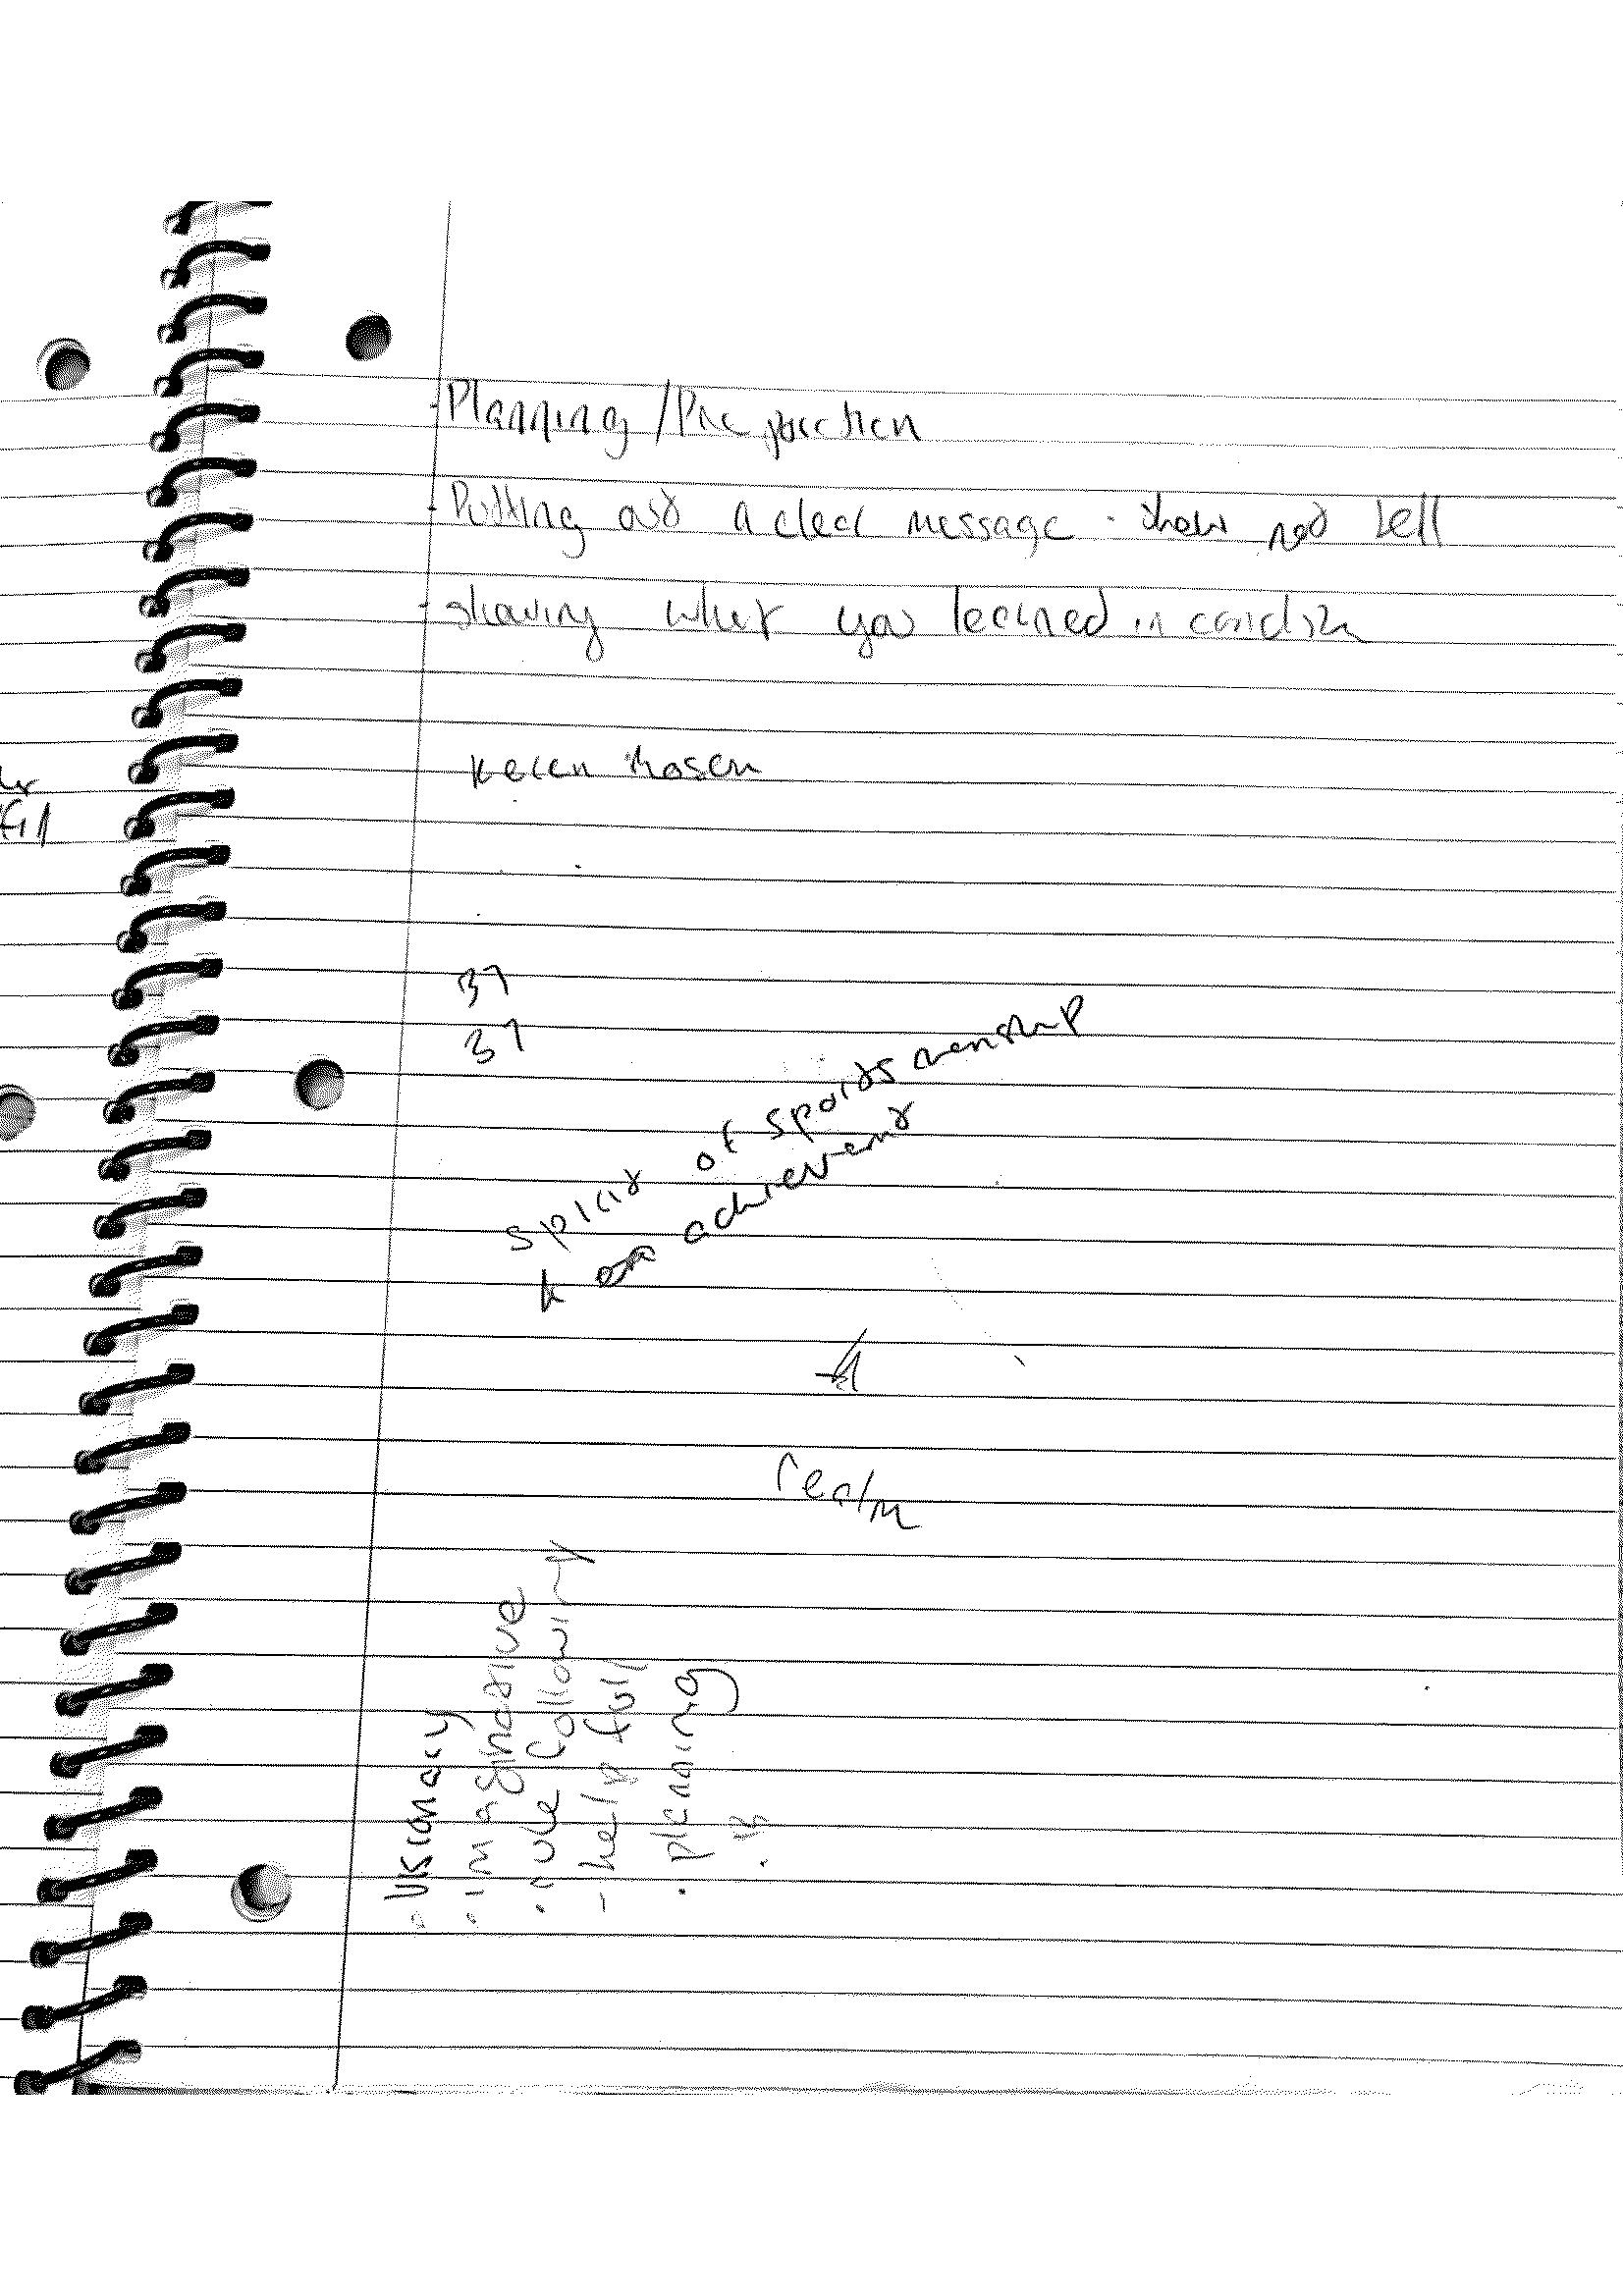 - Planning / Preparation
- Putting out a clear message - show not tell
- showing what you learned in
Karen Rosen
37
37
Spirit of sportsmanship
achievement
realm
- Visionary
- imaginative
- rule following
- helpful
- planning